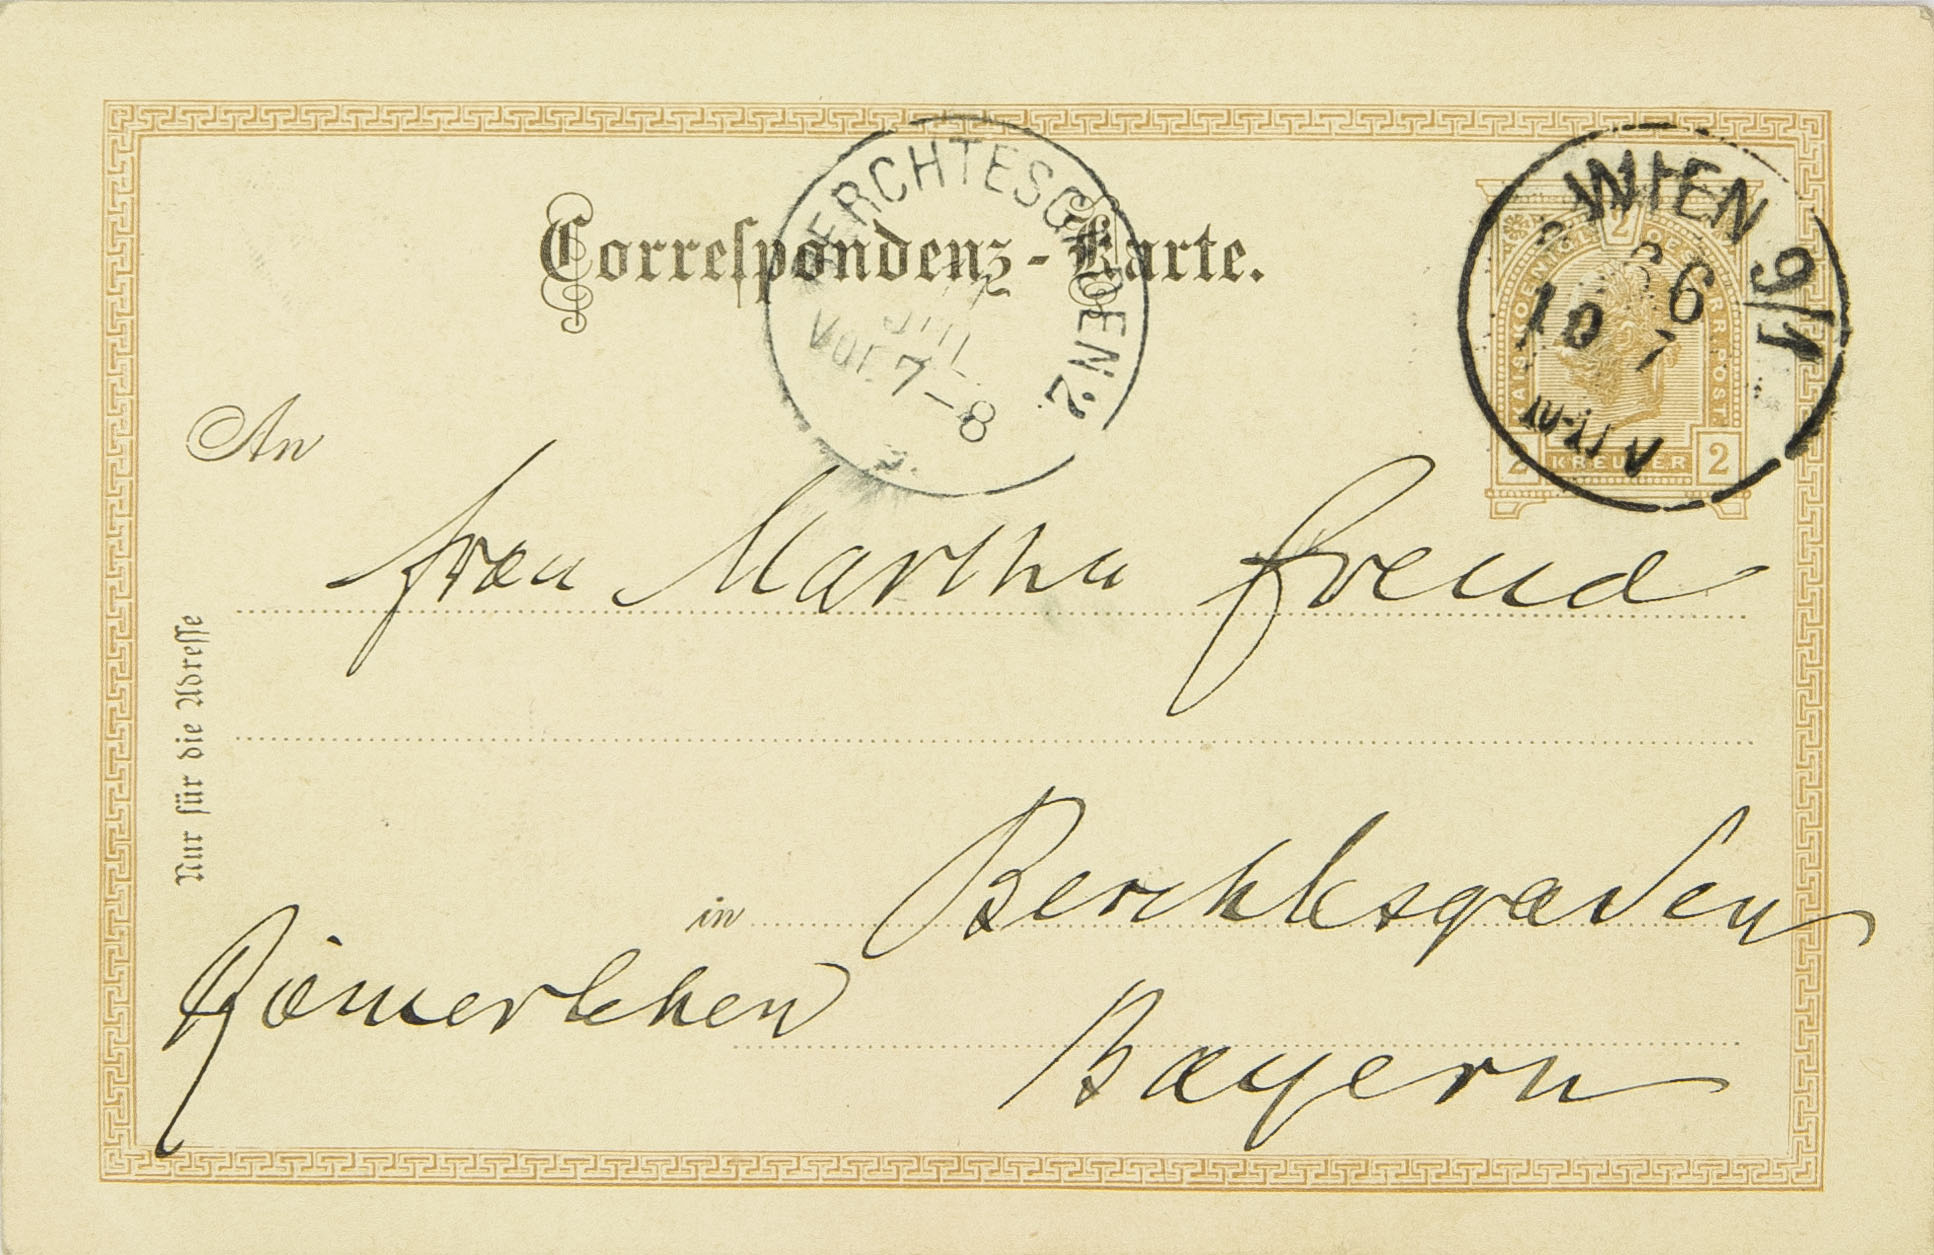 Correspondenz-Karte.
BERCHTESGADEN 2
JUL
Vor. 7-8
WIEN 9/1
10 7
2
KREUZER
2
An
Frau Martha Freud
Nur für die Adresse
in Berchtesgaden
Römerlehen
Bayern